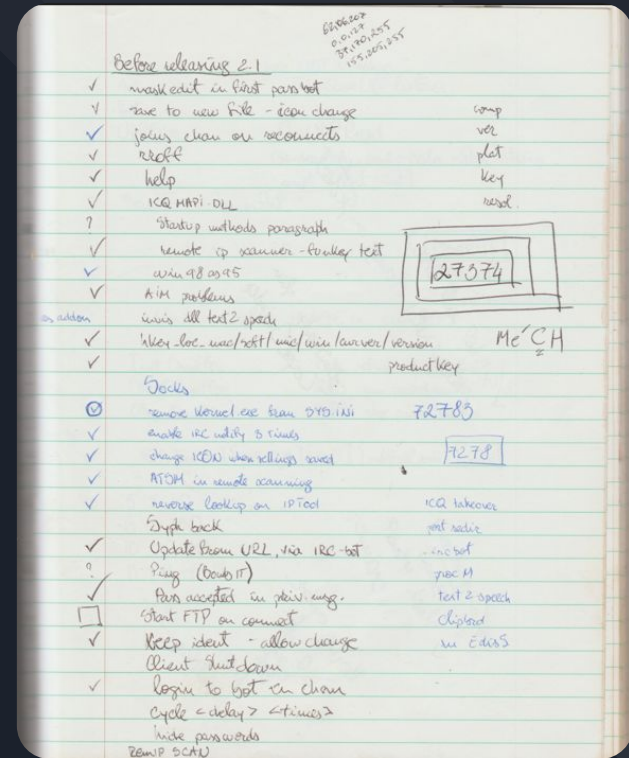 62,06.207
0,0,127
37,170,255
155,205,255
Before releasing 2.1
✓ maskedit in first pass bot
✓ save to new file - icon change
✓ joins chan on reconnects
✓
✓ help
✓ ICQ MAPI.DLL
? Startup methods paragraph
✓ remote ip scanner - funkey text
✓ win 98 as 95
✓ AiM problems
as addon invis dll text 2 speech
✓ hkey_loc_mac/soft/mic/win/curver/version
✓ productkey
comp
ver
plat
key
resol.
27374
MéCH
Socks
remove kernel.exe from SYS.iNi
✓ enable IRC notify 3 times
✓ change ICON when settings saved
✓ in remote scanning
✓ reverse lookup on IPTool
back
✓ Update from URL, via IRC-bot
? Ping
✓ Pass accepted in priv. msg.
Start FTP on connect
✓ Keep ident - allow change
Client Shutdown
✓ login to bot in chan
cycle <delay> <times>
hide passwords
SCAN
72783
7278
ICQ takeover
port redir
irc bot
proc M
text 2 speech
clipbord
in EditS